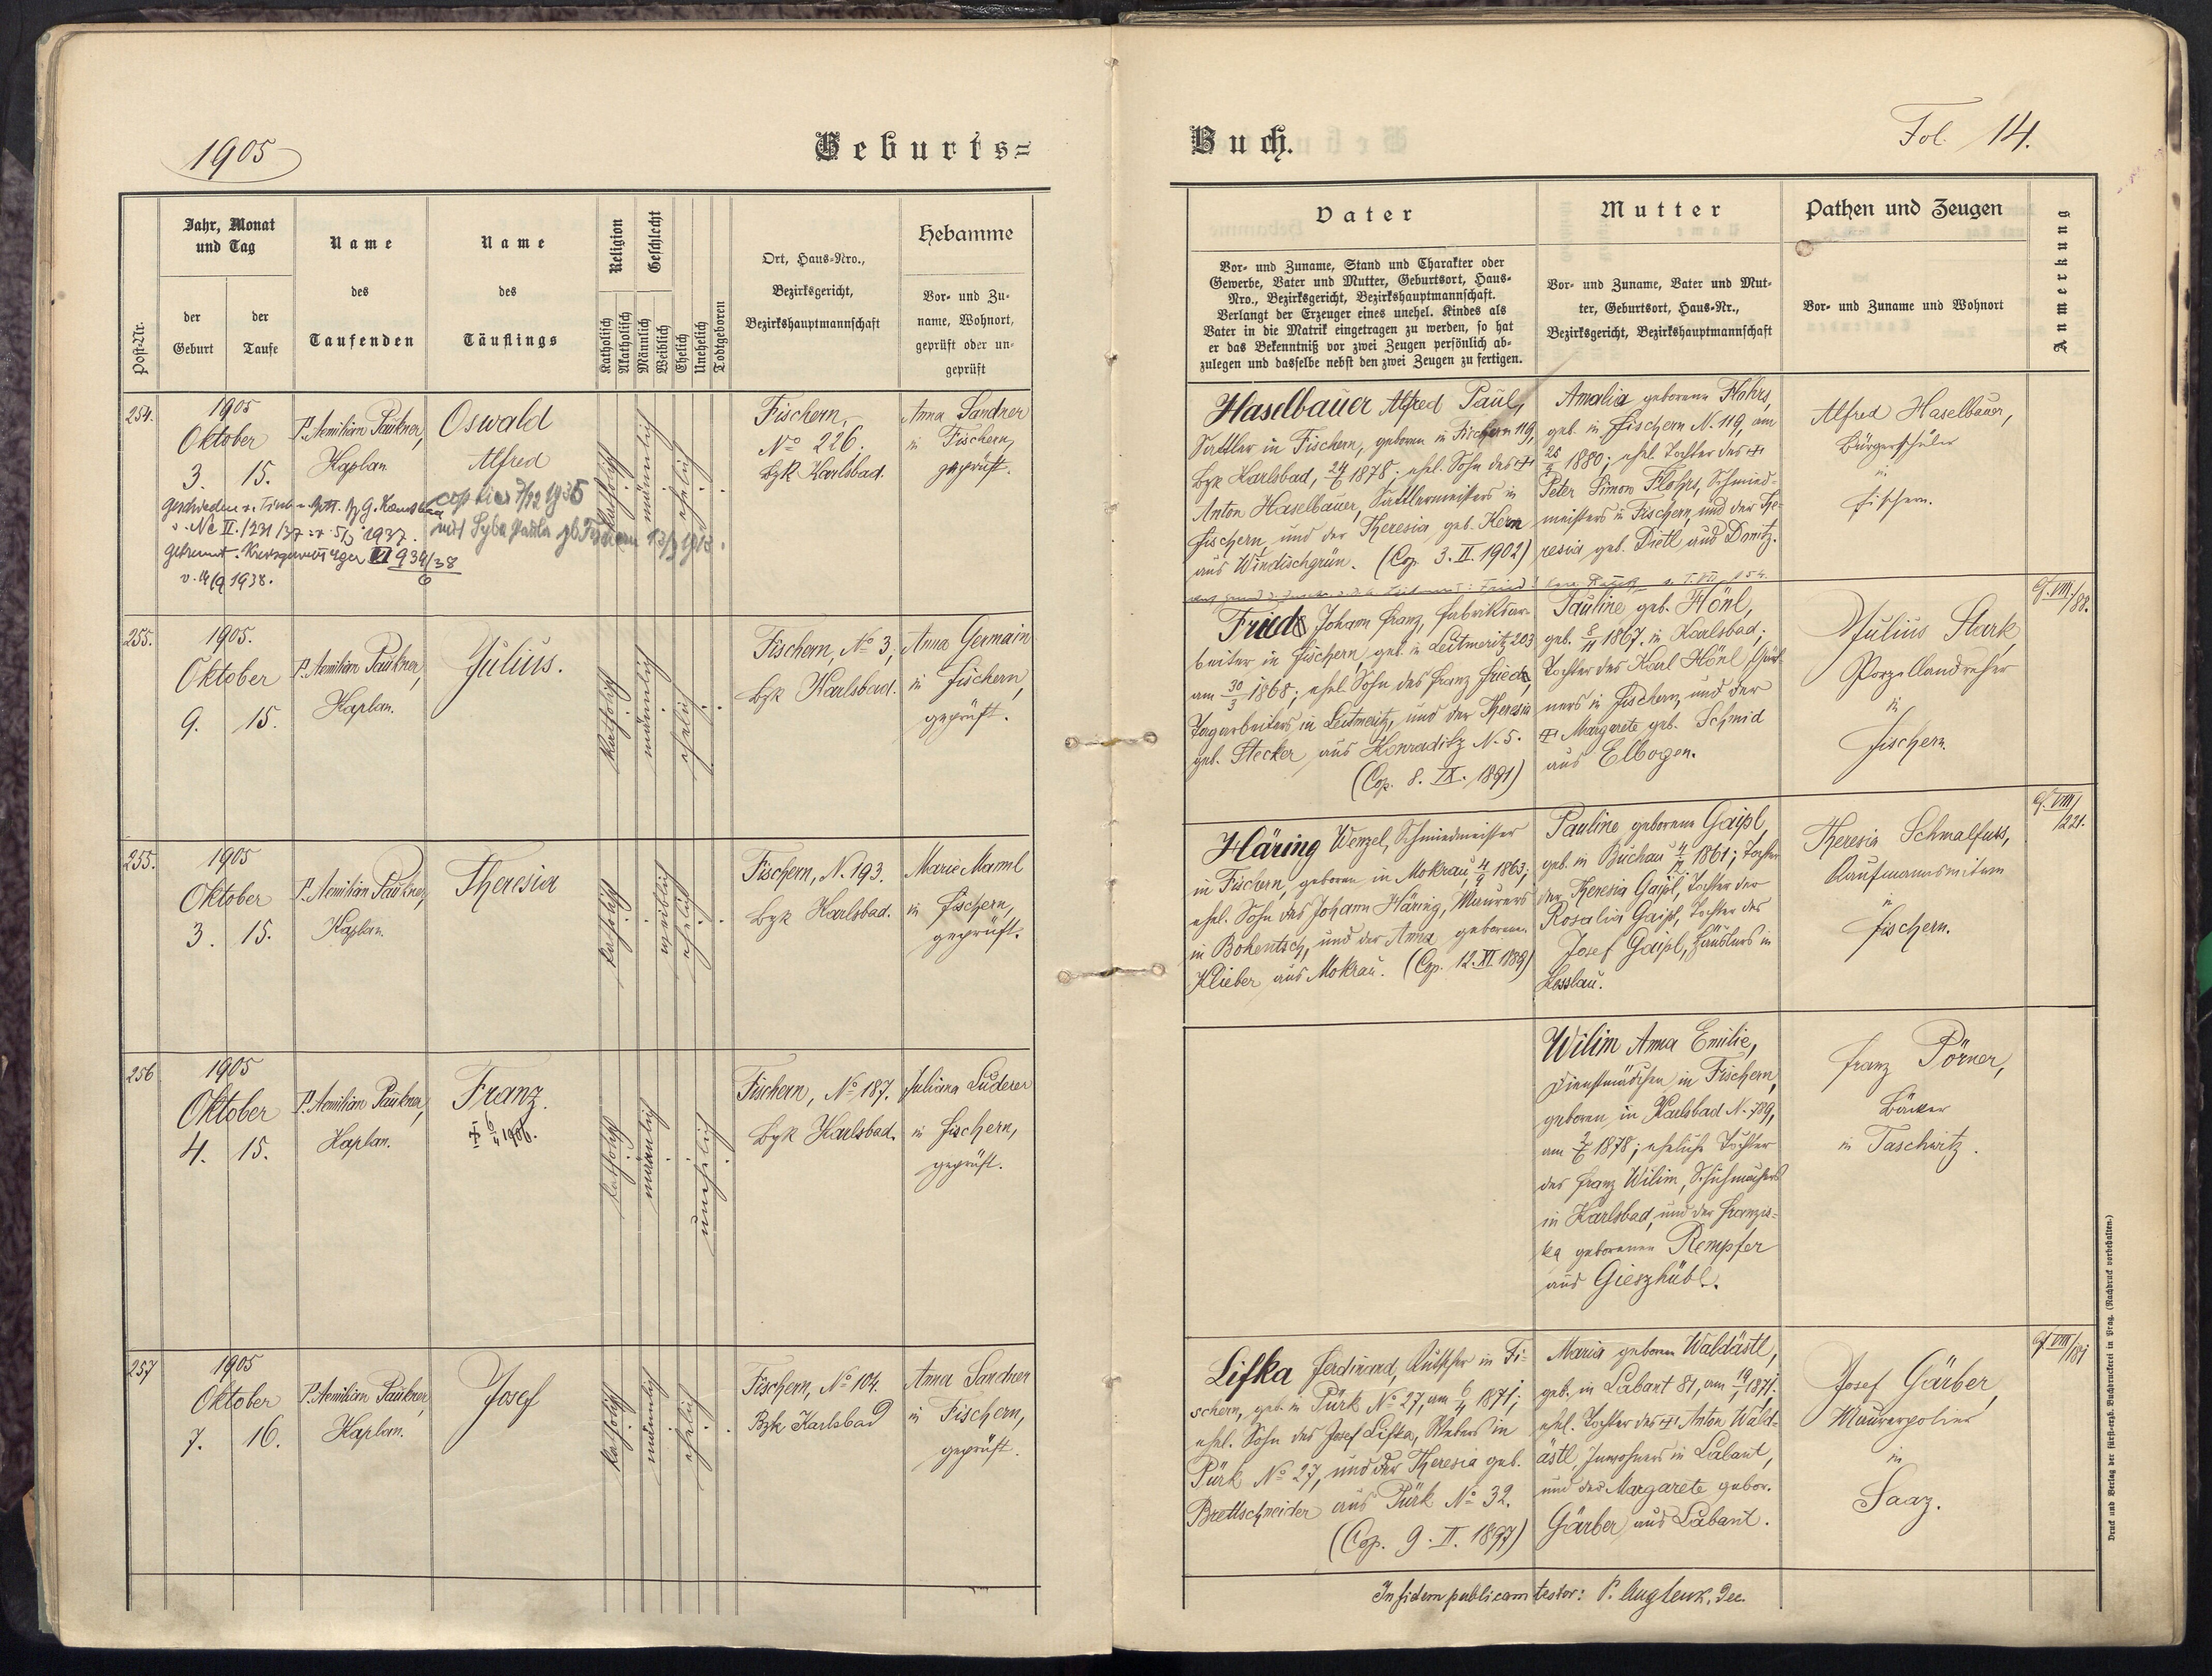 1905
Geburts=
Post-Nr.
Jahr, Monat
und Tag
der
Geburt
der
Taufe
Name
des
Taufenden
Name
des
Täuflings
Religion
Katholisch
Akatholisch
Geschlecht
Männlich
Weiblich
Ehelich
Unehelich
Todtgeboren
Ort, Haus-Nro.,
Bezirksgericht,
Bezirkshauptmannschaft
Hebamme
Vor- und Zu-
name, Wohnort,
geprüft oder un-
geprüft
254.
1905
Oktober
3. 15.
P. Aemilian Paukner,
Kaplan
Oswald
Alfred
katholisch
männlich
ehelich
Fischern,
No 226.
Bzk Karlsbad.
Anna Sandner
in Fischern,
geprüft.
Nc II. /231/37 5/5 1937.
VI 934/38
6
1938.
255.
1905.
Oktober
9. 15.
P. Aemilian Paukner,
Kaplan.
Julius.
katholisch
männlich
ehelich
Fischern, No 3,
Bzk Karlsbad.
Anna Germain
in Fischern,
geprüft.
255.
1905
Oktober
3. 15.
P. Aemilian Paukner,
Kaplan.
Theresia
katholisch
weiblich
ehelich
Fischern, N. 193.
Bzk Karlsbad.
Marie Maml
in Fischern,
geprüft.
256
1905
Oktober
4. 15.
P. Aemilian Paukner,
Kaplan.
Franz.
katholisch
männlich
unehelich
Fischern, No 187.
Bzk Karlsbad.
Juliana Luderer
in Fischern,
geprüft.
257
1905
Oktober
7. 16.
P. Aemilian Paukner,
Kaplan.
Josef
katholisch
männlich
ehelich
Fischern, No 104.
Bzk Karlsbad
Anna Sandner
in Fischern,
geprüft.
Buch.
Fol. 14.
Vater
Vor- und Zuname, Stand und Charakter oder
Gewerbe, Vater und Mutter, Geburtsort, Haus-
Nro., Bezirksgericht, Bezirkshauptmannschaft.
Verlangt der Erzeuger eines unehel. Kindes als
Vater in die Matrik eingetragen zu werden, so hat
er das Bekenntniß vor zwei Zeugen persönlich ab-
zulegen und dasselbe nebst den zwei Zeugen zu fertigen.
Mutter
Vor- und Zuname, Vater und Mut-
ter, Geburtsort, Haus-Nr.,
Bezirksgericht, Bezirkshauptmannschaft
Pathen und Zeugen
Vor- und Zuname und Wohnort
Anmerkung
Haselbauer Alfred Paul,
Sattler in Fischern, geboren in Fischern 119,
Bzk Karlsbad, 1878; ehel. Sohn des +
Anton Haselbauer, Sattlermeisters in
Fischern, und der Theresia geb. Kern
aus Windischgrün. (Cop. 3. II. 1902)
Amalia geborene Flohrs,
geb. in Fischern N. 119, am
1880; ehel. Tochter des +
Peter Simon Flohrs, Schmied-
meisters in Fischern, und der The-
resia geb. Dietl aus Donitz.
Alfred Haselbauer,
Bürgerschüler
in
Fischern.
Fried Johann Franz, Fabriksar-
beiter in Fischern, geb. in Leitmeritz 203
am 30/3 1868; ehel. Sohn des Franz Fried,
Tagarbeiters in Leitmeritz, und der Theresia
geb. Stecker aus Konraditz N. 5.
(Cop. 8. IX. 1891)
Pauline geb. Hönl,
geb. 1867. in Karlsbad;
Tochter des Karl Hönl, Gärt-
ners in Fischern, und der
+ Margarete geb. Schmid
aus Elbogen.
Julius Stark,
Porzellandreher
in
Fischern.
Häring Wenzel, Schmiedmeister
in Fischern, geboren in Mokrau, 4/9 1863;
ehel. Sohn des Johann Häring, Maurers
in Bohentsch, und der Anna geborenen
Klieber aus Mokrau. (Cop. 12. XI. 1889)
Pauline geborene Gaipl,
geb. in Buchau 1861; Tochter
der Theresia Gaipl, Tochter der
Rosalia Gaipl, Tochter des
Josef Gaipl, Häuslers in
Kosslau.
Theresia Schmalfuss,
Kaufmannswitwe
in
Fischern.
Wilim Anna Emilie,
Dienstmädchen in Fischern,
geboren in Karlsbad N. 789,
am 1878; eheliche Tochter
des Franz Wilim, Schuhmachers
in Karlsbad, und der Franzis-
ka geborenen Rempfer
aus Gieszhübl.
Franz Pörner,
Bäcker
in Taschwitz.
Lifka Ferdinand, Kutscher in Fi-
schern, geb. in Pürk No 27, am 6/4 1871;
ehel. Sohn des Josef Lifka, Webers in
Pürk No 27, und der Theresia geb.
Brettschneider aus Pürk No 32.
(Cop. 9. II. 1897)
Maria geborene Waldästl,
geb. in Labant 81, am 1871;
ehel. Tochter des + Anton Wald-
ästl, Inwohners in Labant,
und der Margarete gebor.
Gärber aus Labant.
Josef Gärber,
Maurerpolier
in
Saaz.
In fidem publicam testor:
Druck und Verlag der fürst-erzb. Buchdruckerei in Prag. (Nachdruck vorbehalten.)